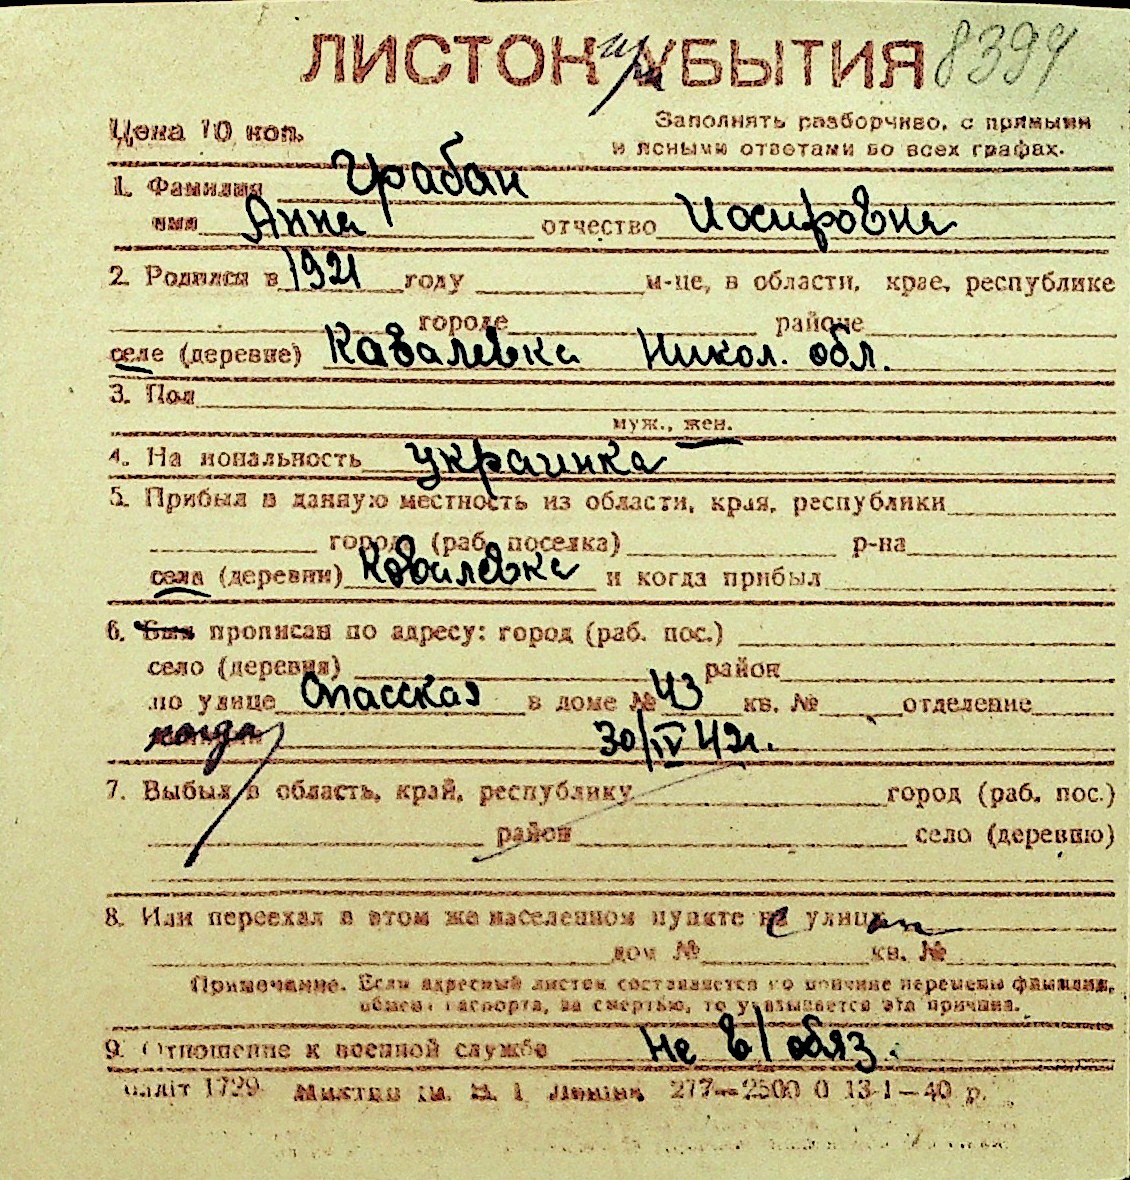 ЛИСТОК УБЫТИЯ 8394
Цена 10 коп.
Заполнять разборчиво, с прямыми
и ясными ответами во всех графах.
1. Фамилия Грабан
имя Анна отчество Иосифовна
2. Родился в 1921 году м-це, в области, крае, республике
городе районе
селе (деревне) Кавалевка Никол. обл.
3. Пол
муж., жен.
4. На иональность украинка
5. Прибыл в данную местность из области, края, республики
город (раб. поселка) р-на
села (деревни) Ковалевка и когда прибыл
6. Был прописан по адресу: город (раб. пос.)
село (деревня) район
по улице Спасская в доме № 43 кв. № отделение
когда 30/IV 42г.
7. Выбыл в область, край, республику город (раб. пос.)
район село (деревню)
8. Или переехал в этом же населенном пункте на улицу
дом № кв. №
Примечание. Если адресный листок составляется по причине перемены фамилии,
обмена паспорта, за смертью, то указывается эта причина.
9. Отношение к военной службе не в/обяз.
1729 277—2500 0 13-1—40 р.